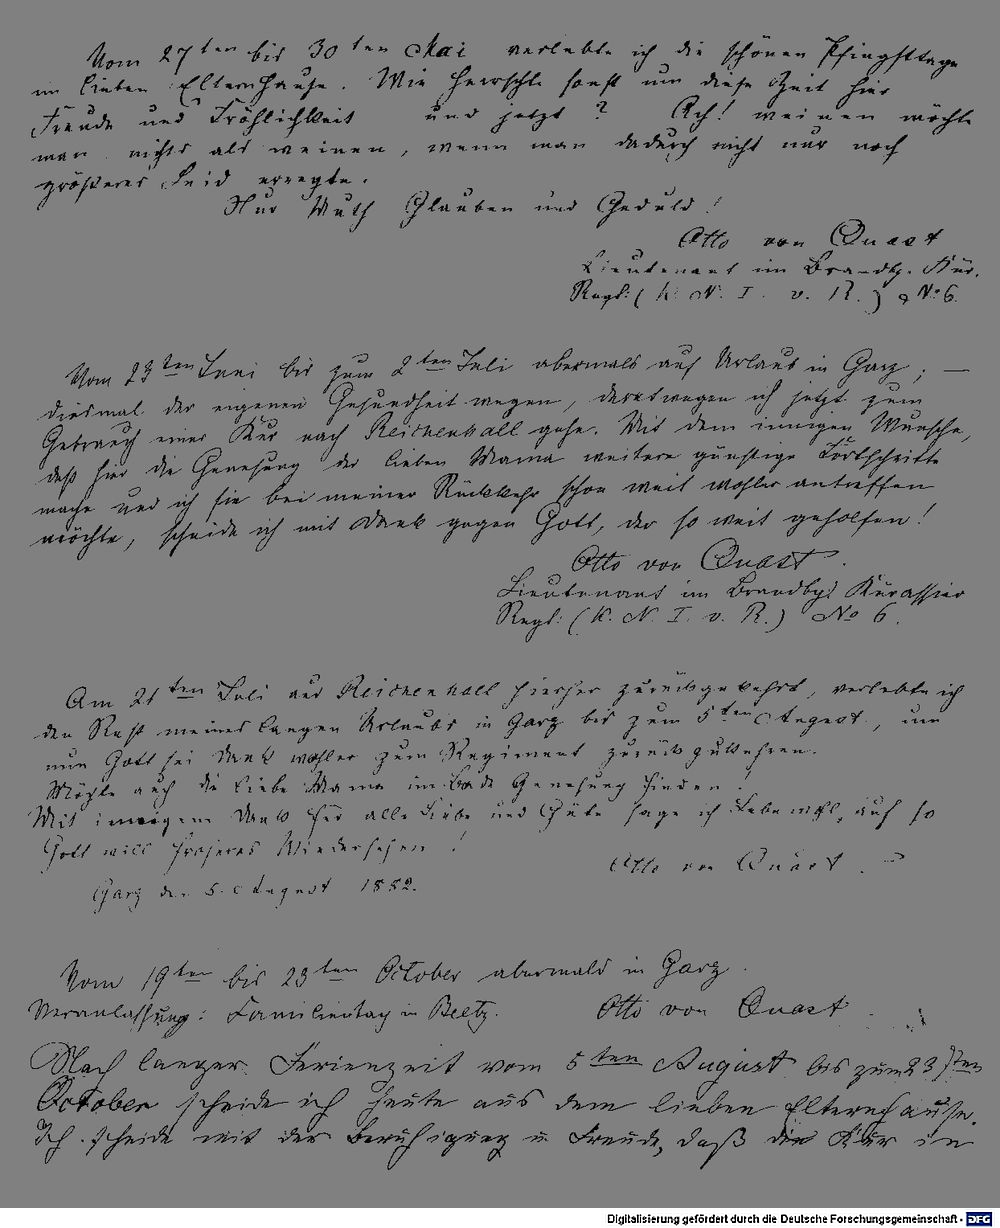 Vom 27ten bis 30ten Mai verlebte ich die schönen Pfingsttage
im lieben Elternhause. Wie herrschte sonst um diese Zeit hier
Freude und Fröhlichkeit und jetzt? Ach! weinen möchte
man nichts als weinen, wenn man dadurch nicht nur noch
größeres Leid erregte.
Nur Muth Glauben und Geduld!
Otto von Quast
Lieutenant im Brandbg. Kür.
Regt: (K. N. I. v. R.) No 6.
Vom 23ten Juni bis zum 2ten Juli abermals auf Urlaub in Garz; —
diesmal der eigenen Gesundheit wegen, derentwegen ich jetzt zum
Gebrauch einer Kur nach Reichenhall gehe. Mit dem innigen Wunsche,
daß hier die Genesung der lieben Mama weitere günstige Fortschritte
mache und ich sie bei meiner Rückkehr schon weit wohler antreffen
möchte, scheide ich mit Dank gegen Gott, der so weit geholfen!
Otto von Quast.
Lieutenant im Brandbg: Kürassier
Regt: (K. N. I. v. R.) No 6.
Am 21ten Juli aus Reichenhall hierher zurückgekehrt, verlebte ich
den Rest meines langen Urlaubs in Garz bis zum 5ten August, um
nun Gott sei Dank wohler zum Regiment zurückzukehren.
Möge auch die liebe Mama im Bade Genesung finden.
Mit innigem Dank für alle Liebe und Güte sage ich Lebewohl, auf so
Gott will froheres Wiedersehen!
Otto von Quast.
Garz den 5. August 1882.
Vom 19ten bis 23ten October abermals in Garz.
Veranlassung: Familientag in Beetz.
Otto von Quast.
Nach langer Ferienzeit vom 5ten August bis zum 23sten
October scheide ich heute aus dem lieben Elternhause.
Ich scheide mit der Beruhigung u Freude, daß die Kur in
Digitalisierung gefördert durch die Deutsche Forschungsgemeinschaft - DFG